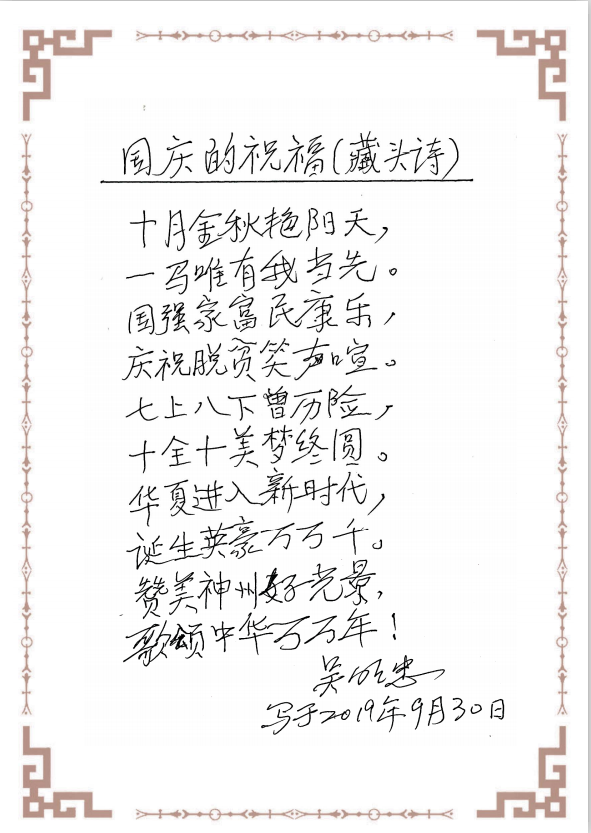 国庆的祝福(藏头诗)
十月金秋艳阳天,
一马唯有我当先。
国强家富民康乐,
庆祝脱贫笑声喧。
七上八下曾历险,
十全十美梦终圆。
华夏进入新时代,
诞生英豪万万千。
赞美神州好光景,
歌颂中华万万年!
吴忠
写于2019年9月30日